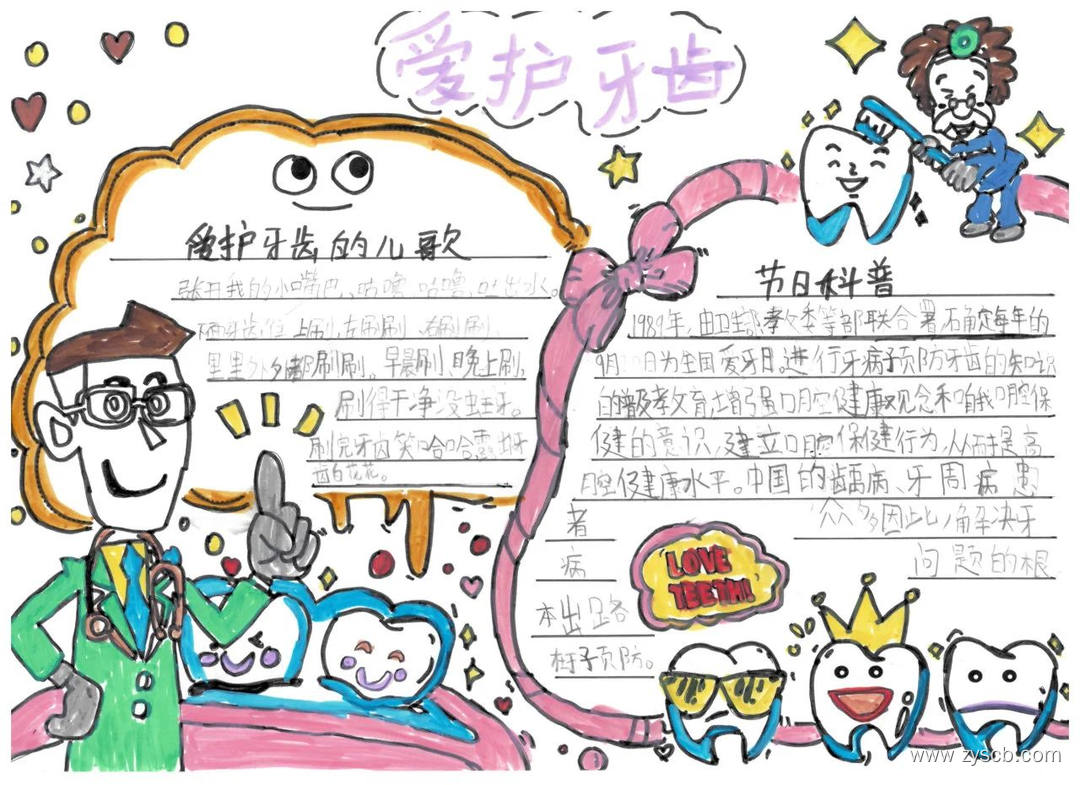 爱护牙齿
爱护牙齿的儿歌
张开我的小嘴巴、咕噜、咕噜、吐出水。
上刷刷、左刷刷、右刷刷、
里里外外都刷刷。早晨刷、晚上刷,
刷得干净没蛀牙。
刷完牙齿笑哈哈,露出牙
齿白花花。
节日科普
1989年,由卫生部、教委等部联合署名确定每年的
月 日为全国爱牙日。进行牙病预防牙齿的知识
的普及教育,增强口腔健康观念和自我口腔保
健的意识,建立口腔保健行为,从而提高
口腔健康水平。中国的龋病、牙周病患
者 众多因此,解决牙
病 问题的根
本出路
在于预防。
LOVE
TEETH!
www.zyscb.com